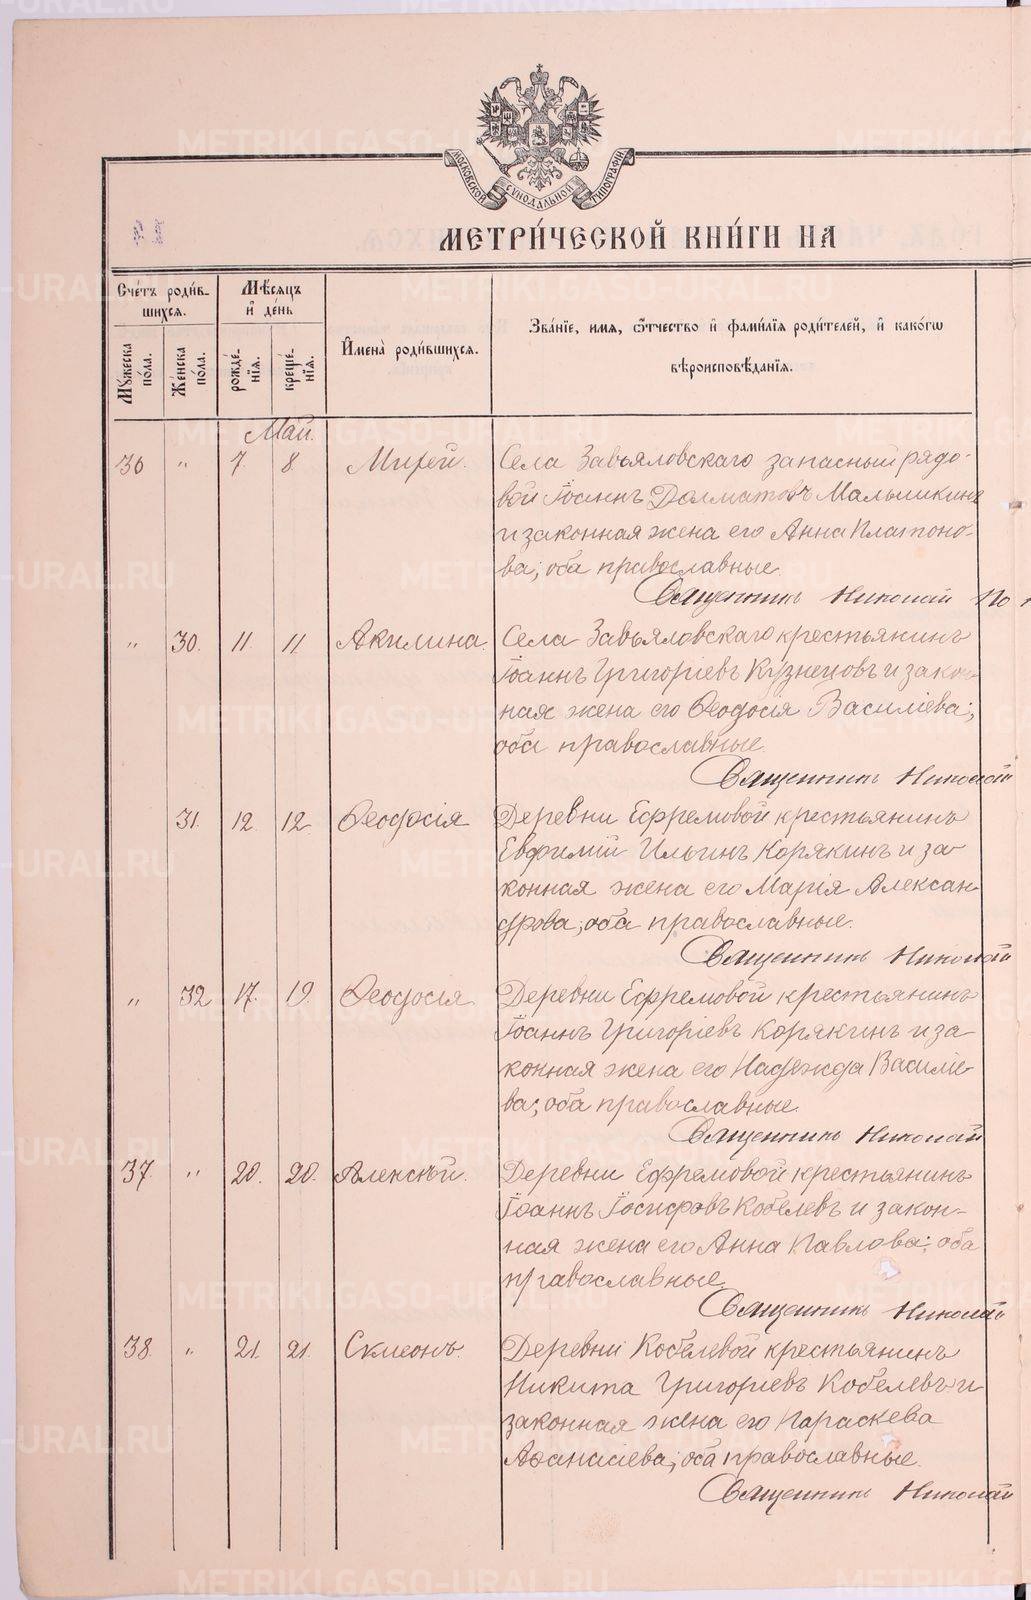 МОСКОВСКОЙ СѴНОДАЛЬНОЙ ТИПОГРАФІИ.
МЕТРИ́ЧЕСКОЙ КНИ́ГИ НА
24
Сче́тъ роди́в-
шихся.
Мꙋ́жеска
по́ла.
Же́нска
по́ла.
Мѣ́сяцъ
и҆ де́нь
рожде́-
нїѧ.
креще́-
нїѧ.
И҆мена̀ роди́вшихся.
Зва́нїе, имѧ, ѻ҆́тчество и҆ фами́лїѧ роди́телей, и҆ како́гѡ
вѣроисповѣ́данїѧ.
Май.
36 " 7. 8. Михей. Села Завьяловскаго запасный рядо-
вой Іоаннъ Долматовъ Малышкинъ
и законная жена его Анна Платоно-
ва; оба православные.
Священникъ Николай По
" 30. 11. 11. Акилина. Села Завьяловскаго крестьянинъ
Іоаннъ Григоріевъ Кузнецовъ и закон-
ная жена его Ѳеодосія Василіева;
оба православные.
Священникъ Николай
31. 12. 12. Ѳеодосія Деревни Ефремовой крестьянинъ
Евфимій Ильинъ Корякинъ и за-
конная жена его Марія Алексан-
дрова; оба православные.
Священникъ Николай
" 32 17. 19. Ѳеодосія Деревни Ефремовой крестьянинъ
Іоаннъ Григоріевъ Корякинъ и за-
конная жена его Надежда Василіе-
ва; оба православные.
Священникъ Николай
37. " 20. 20. Алексѣй. Деревни Ефремовой крестьянинъ
Іоаннъ Іосифовъ Кобелевъ и закон-
ная жена его Анна Павлова; оба
православные.
Священникъ Николай
38. " 21. 21. Симеонъ Деревни Кобелевой крестьянинъ
Никита Григоріевъ Кобелевъ и
законная жена его Параскева
Аѳанасіева; оба православные.
Священникъ Николай
METRIKI.GASO-URAL.RU